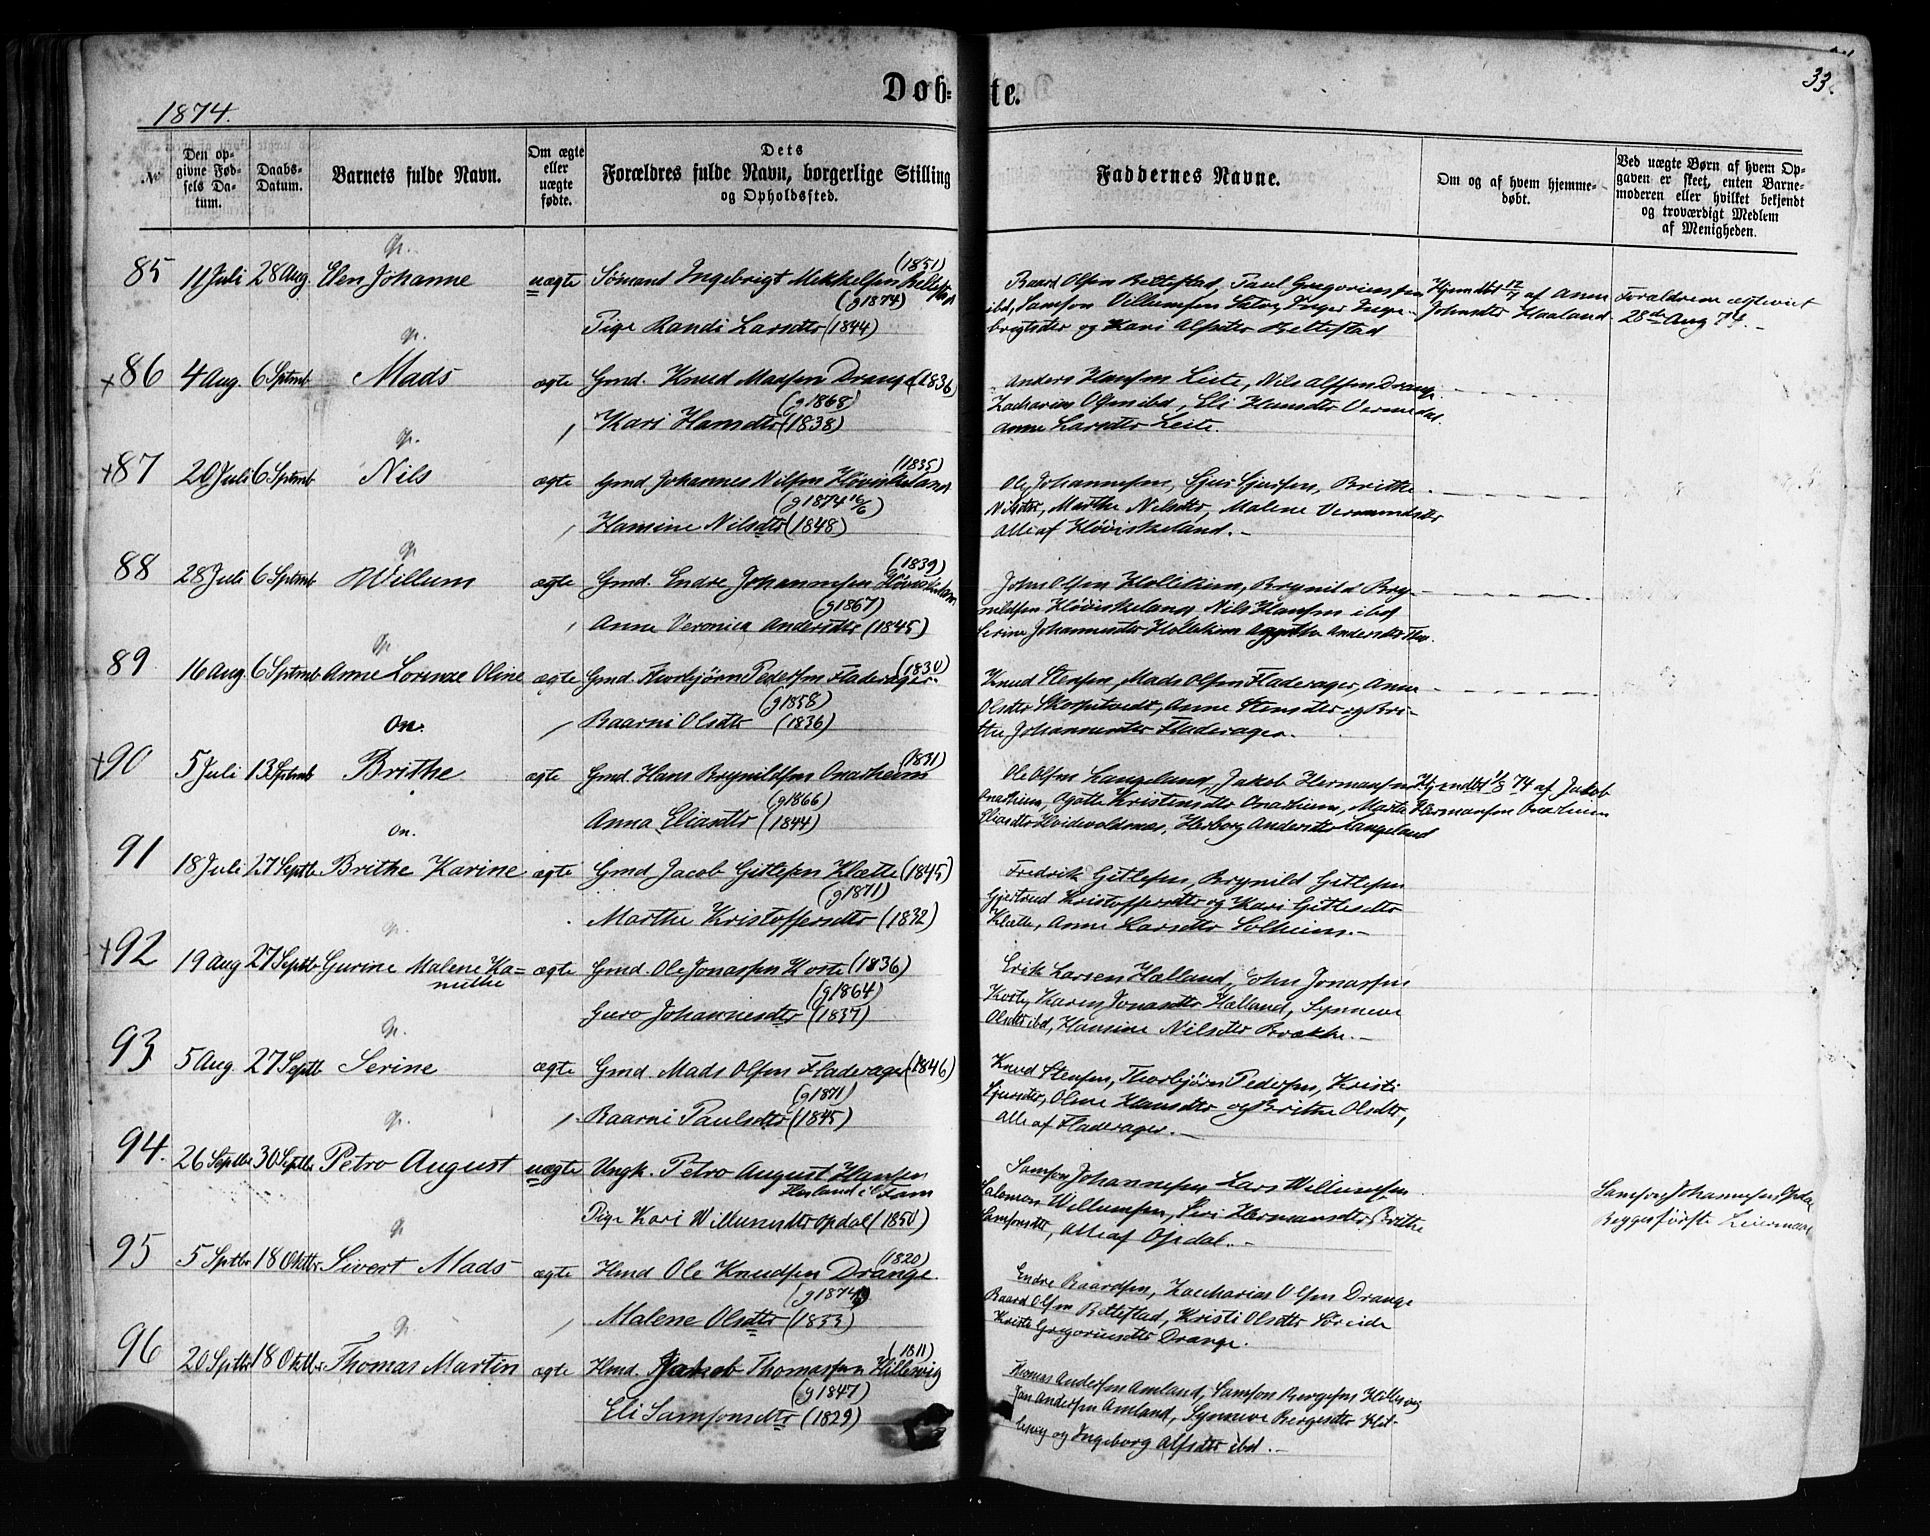 1874.
Døb-
te.
33.
No
Den op-
givne Fød-
sels Da-
tum.
Daabs-
Datum.
Barnets fulde Navn.
Om ægte
eller
uægte
fødte.
Dets
Forældres fulde Navn, borgerlige Stilling
og Opholdssted.
Faddernes Navne.
Om og af hvem hjemme-
døbt.
Ved uægte Børn af hvem Op-
gaven er skeet, enten Barne-
moderen eller hvilket bekjendt
og troværdigt Medlem
af Menigheden.
85 11 Juli 28 Aug. Elen Johanne uægte Sømand Ingebrigt Mikkelsen (1851)
(g 1874)
Pige Randi Larsdtr (1844)
Baard Olsen Rettestad, Paul Gregoriussen
ibd, Samson Villumsen Inge-
brigtsdtr og Kari Alfsdtr Rettestad
Hjemdbt 12/7 af Anna
Johnsdtr Haaland
Forældrene ægteviet
28de Aug 74.
86 4 Aug. 6 Sptmb Mads ægte Gmd. Knud Madsen Drange (1836)
(g 1868)
Kari Hansdtr (1838)
Anders Hansen Leite, Nils Alfsen Drange
Zacharias Olsen ibd, Eli Hansdtr
Anne Larsdtr Leite.
87 20 Juli 6 Sptmb Nils ægte Gmd Johannes Nilsen Høviskeland (1835)
(g 1874 16/6)
Hansine Nilsdtr (1848)
Ole Johannesen, Sjur Sjursen, Brithe
Nilsdtr, Marthe Nilsdtr, Malene Vermundsdtr
alle af Høviskeland.
88 28 Juli 6 Sptmb Willum ægte Gmd. Endre Johannesen Høviskeland (1839)
(g 1867)
Anne Veronica Andersdtr (1845)
John Olsen Hollekim, Brynild Bry-
nildsen Høviskeland, Nils Hansen ibd
Serine Johannesdtr Agathe Andersdtr
89 16 Aug. 6 Sptmb Anne Lorenze Oline ægte Gmd. Thorbjørn Pedersen Fladerager (1830)
(g 1858)
Baarni Olsdtr (1836)
Knud Stensen, Mads Olsen Fladerager, Anna
Olsdtr Skorpetvedt, Anne Stensdtr og Bri-
the Johannesdtr Fladerager.
90 5 Juli 13 Sptmb Brithe ægte Gmd. Hans Brynildsen Onarheim (1831)
(g 1866)
Anna Eliasdtr (1844)
Ole Olsen Langeland, Jakob Hermansen
Onarheim, Agathe Kristensdtr Onarheim, Marta
Eliasdtr Herborg Andersdtr Langeland
Hjemdbt 74 af Jakob
Hermansen Onarheim
91 18 Juli 27 Septb Brithe Karine ægte Gmd Jacob Gitlesen Klætte (1845)
(g 1871)
Marthe Kristoffersdtr (1832)
Fredrik Gitlesen, Brynild Gitlesen
Gjertrud Kristoffersdtr og Kari Gitlesdtr
Klætte, Anne Larsdtr Solheim.
92 19 Aug 27 Septb Gurine Malene Ka=
nuthe
ægte Gmd. Ole Jonassen Koste (1836)
(g 1864)
Guro Johannesdtr (1837)
Erik Larsen Hælland, John Jonassen
Koste, Karen Jonasdtr Hælland, Synneve
Olsdtr ibd, Hansine Nilsdtr Brække.
93 5 Aug 27 Septb Serine ægte Gmd. Mads Olsen Fladerager (1846)
(g 1871)
Baarni Paulsdtr (1845)
Knud Stensen, Thorbjørn Pedersen, Kristi
Sjursdtr, Oline Hansdtr og Brithe Olsdtr,
alle af Fladerager.
94. 26 Septbr 30 Septbr Petro August uægte Ungk. Petro August Hansen
i Fane
Pige Kari Willumsdtr Opdal (1850)
Samson Johannesen, Lars Willumsen
Salomon Willumsen, Siri Hermansdtr, Brithe
Samsonsdtr, alle af Opdal.
Samson Johannesen Opdal
Begges første Leiermaal
95 5 Septbr 18 Oktbr Sivert Mads ægte Hmd Ole Knudsen Drange (1820)
(g 1874)
Malene Olsdtr (1833)
Endre Baardsen, Zaccharias Olsen Drange
Baard Olsen Rettestad, Kristi Olsdtr Søreide
Kristi Gregoriusdtr Drange.
96 20 Septbr 18 Oktbr Thomas Martin ægte Hmd. Jakob Thomassen Hillesvig (1811)
(g 1847)
Eli Samsonsdtr (1829)
Thomas Andersen Amland, Samson Bergesen Hillesvig
Jan Andersen Amland, Synneve Bergesdtr Hil-
lesvig og Ingeborg Alfsdtr ibd.